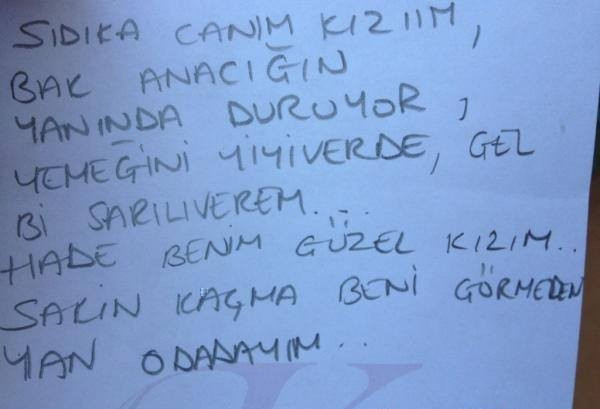 SIDIKA CANIM KIZIIM,
BAK ANACIĞIN
YANINDA DURUYOR,
YEMEĞİNİ YİYİVERDE, GEL
Bİ SARILIVEREM...
HADE BENİM GÜZEL KIZIM..
SAKIN KAÇMA BENİ GÖRMEDEN
YAN ODADAYIM..